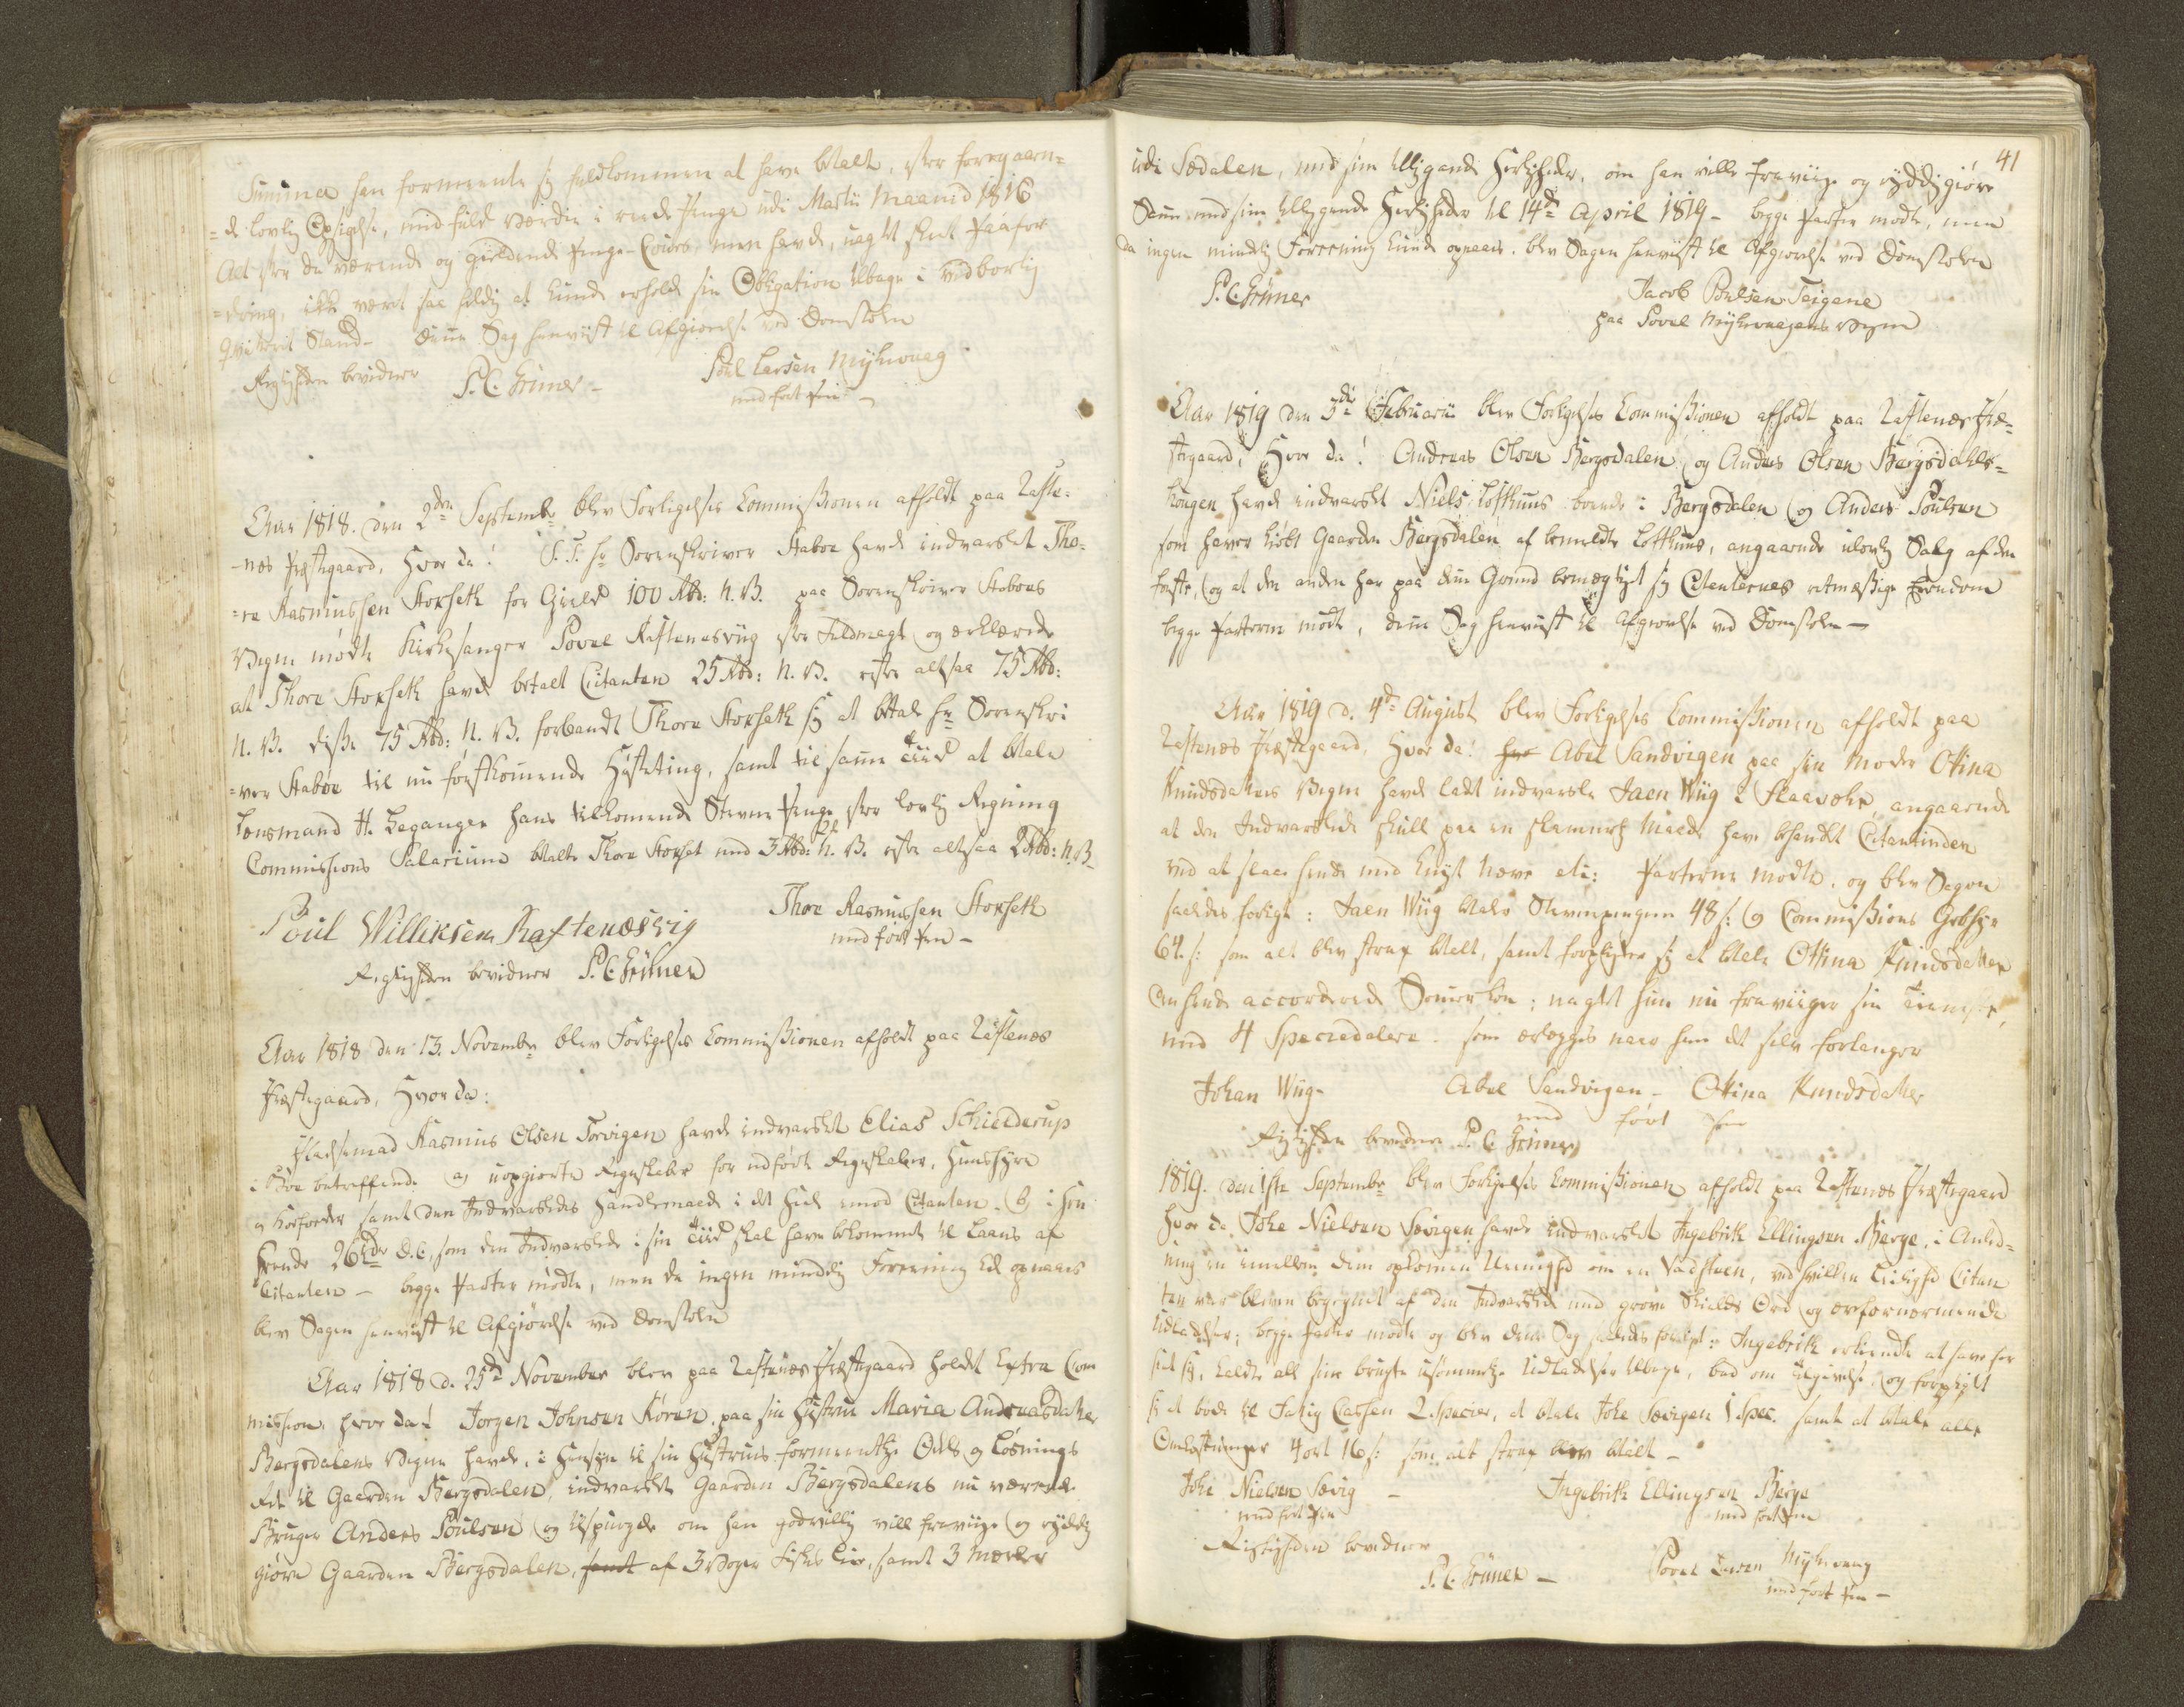 Summa han formeente sig fuldkommen at have betalt, efter foregaaen-
-de lovlig Opsigelse, med fuld værdie i rede Penge udi Martii Maaned 1816
Alt efter da værende og gieldende Penge-Cours, men havde, uagtet sket Paafor
-dring, ikke været saa heldig at kunde erholde sin Obligation tilbage i vedbørlig
Qviterit Stand - denne Sag henviist til Afgiørelse ved Domstolen
Rigtigheden bevidner P. C. Grüner - Poul Larsen Myhrvaag
med ført Pen -
Aar 1818. den 2den Septembr blev Forligelses Commissionen afholdt paa Læste-
-næs Præstegaard, Hvor da! S. T. Hr Sorenskriver Staboe havde indvarslet Tho-
-re Rasmussen Storseth for Gield 100 Rbd: N. V. paa Sorenskriver Staboes
Vegne mødte Kirkesanger Povel Raftenæsviig efter Fuldmagt og erklærede
at Thore Storseth havde betalt Citanten 25 Rbd: N. V. rester altsaa 75 Rbd:
N. V. disse 75 Rbd: N. V. forbandt Thore Storseth sig at betale Hr Sorenskri
-ver Staboe til nu førstkommende Høsteting, samt til samme Tiid at betale
Lensmand H. Leganger hans tilkommende Stevne Penge efter lovlig Regning
Commissions Salarium betalte Thore Storset med 3 Rbd: N. V. rester altsaa 2 Rbd: N. V.
Poul Williksen Raftenæsvig Thore Rasmussen Storseth
med ført Pen -
Rigtigheden bevidner P. C. Grüner
Aar 1818 den 13. Novembr blev Forligelses Commissionen afholdt paa Læstenæs
Præstegaard, Hvor da:
Pladsemand Rasmus Olsen Torvigen havde indvarslet Elias Schielderup
i Bøe betreffende a, uopgiorte Regnskaber for udført Regnskaber, Huushyre
og Kosforder samt den Indvarsledes Handlemaade i det Heele imod Citanten. b, i Hen
seende 26 rdr d. C. som den Indvarslede i sin Tiid skal have bekommet til Laans af
Citanten - begge Parter mødte, men da ingen mindelig Foreening lod opnaaes
blev Sagen henviist til Afgiørelse ved Domstolen
Aar 1818 d. 25de November blev paa Læstenæs Præstegaard holdt Extra Com
mission, hvor da! Jorgen Johnsen Køren, paa sin Hustrue Maria Andreasdatter
Bergsdalens Vegne havde, i Hensyn til sin Hustrues formeentlige Odels og Løsnings
Ret til Gaarden Bergsdalen, indvarslet Gaarden Bergsdalens nu værende
Bruger Anders Poulsen og tilspurgde om han godvillig vill fraviige og ryddig
giøre Gaarden Bergsdalen, samt af 3 Voger Fiskes Leie, samt 3 Mærker
41
udi Sædalen, med sine tilliggende Herligheder, om han ville fraviige og ryddiggiøre
Samme med sine tilliggende Herligheder til 14de April 1819 - begge Parter mødte, men
da ingen mindelig Foreening kunde opnaaes. blev Sagen henviist til Afgiørelse ved Domstolen
P. C. Grüner Jacob Poulsen Teigene
paa Povel Myhrvaagens Vegne
Aar 1819 den 3de Februarii blev Forligelses Commissionen afholdt paa Læstenæs Præ-
stegaard, Hvor da! Andreas Olsen Bergsdalen og Anders Olsen Bergsdahls-
haugen havde indvarslet Niels Lofthuus boende i Bergsdalen og Anders Poulsen
som haver kiøbt Gaarden Bergsdalen af bemeldte Lofthuus, angaaende ulovlig Salg af den
første, og at den anden har paa denne Grund bemægtiget sig Citanternes retmæssige Eiendom
begge Parterne mødte, denne Sag henviist til Afgiørelse ved Domstolen -
Aar 1819 d. 4de August blev Forligelses Commissionen afholdt paa
Læstenæs Præstegaard, Hvor da! Abel Sandvigen paa sin Moder Otina
Knudsdatters Vegne havde ladet indvarsle Jaen Wiig angaaende
at den Indvarslede skulle paa en skammelig Maade have behandlet Citantinden
ved at slaae hende med knyt Næve etc: Parterne mødte, og blev Sagen
saaledes forligt: Jaen Wiig betaler Stevnepengene 48 s: og Commissions Gebhyr
64 s: som alt blev strax betalt, samt forpligter sig at betale Otina Knudsdatter
hende accorderede Sommerløn; uagtet hun nu fraviiger sin Tieneste,
med 4 Speciedalere. som erlegges naar hun det selv forlanger
Johan Wiig - Abel Sandvigen - Otina Knudsdatter
med ført Pen
Rigtigheden bevidner P. C. Grüner
1819. den 1ste Septembr blev Forligelses Commissionen afholdt paa Læstenæs Præstegaard
Hvor da Johe Nielsen Sævigen havde indvarslet Ingebrih Ellingsen Berge, i Anled-
ning en imellem dem opkommen Ueenighed om en Vadsteen, ved hvilken Leilighed Citan
ten var bleven begegnet af den Indvarslede med grove Skields Ord og ærefornærmende
Udladelser; begge Parter mødte og blev denne Sag saaledes forligt: Ingebrih erkiendte at have for
seet sig, kaldte alle sine brugte usømmelige Udladelser tilbage, bad om Tilgivelse, og forpligtet
sig at bøde til Fattig Cassen 2 Specier, at betale Johe Sævigen 1 Spec. samt at betale alle
Omkostninger 4 ort 16 s: som alt strax blev betalt -
Johe Nielsen Sævig - Ingebrih Ellingsen Berge
med ført Pen med ført Pen
Rigtigheden bevidner
P. C. Grüner - Povel Larsen Myhrvaag
med ført Pen -